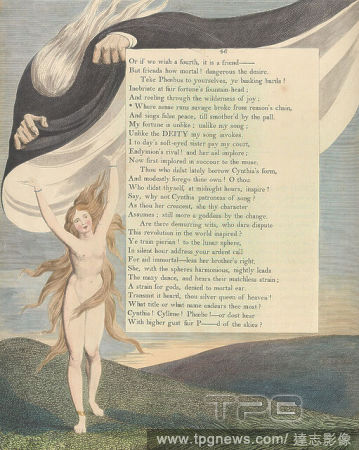 46
Or if we wish a fourth, it is a friend——
But friends how mortal! dangerous the desire.
Take Phœbus to yourselves, ye basking bards!
Inebriate at fair fortune's fountain-head;
And reeling through the wilderness of joy;
* Where sense runs savage broke from reason's chain,
And sings false peace, till smother'd by the pall.
My fortune is unlike; unlike my song;
Unlike the DEITY my song invokes.
I to day's soft-eyed sister pay my court,
Endymion's rival! and her aid implore;
Now first implored in succour to the muse.
Thou who didst lately borrow Cynthia's form,
And modestly forego thine own! O thou
Who didst thyself, at midnight hours, inspire!
Say, why not Cynthia patroness of song?
As thou her crescent, she thy character
Assumes; still more a goddess by the change.
Are there demurring wits, who dare dispute
This revolution in the world inspired?
Ye train pierian! to the lunar sphere,
In silent hour address your ardent call
For aid immortal—less her brother's right.
She, with the spheres harmonious, nightly leads
The mazy dance, and hears their matchless strain;
A strain for gods, denied to mortal ear.
Transmit it heard, thou silver queen of heaven!
What title or what name endears thee most?
Cynthia! Cyllene! Phœbe!—or dost hear
With higher gust fair P——d of the skies?
TPG
www.tpgnews.com/ 達志影像